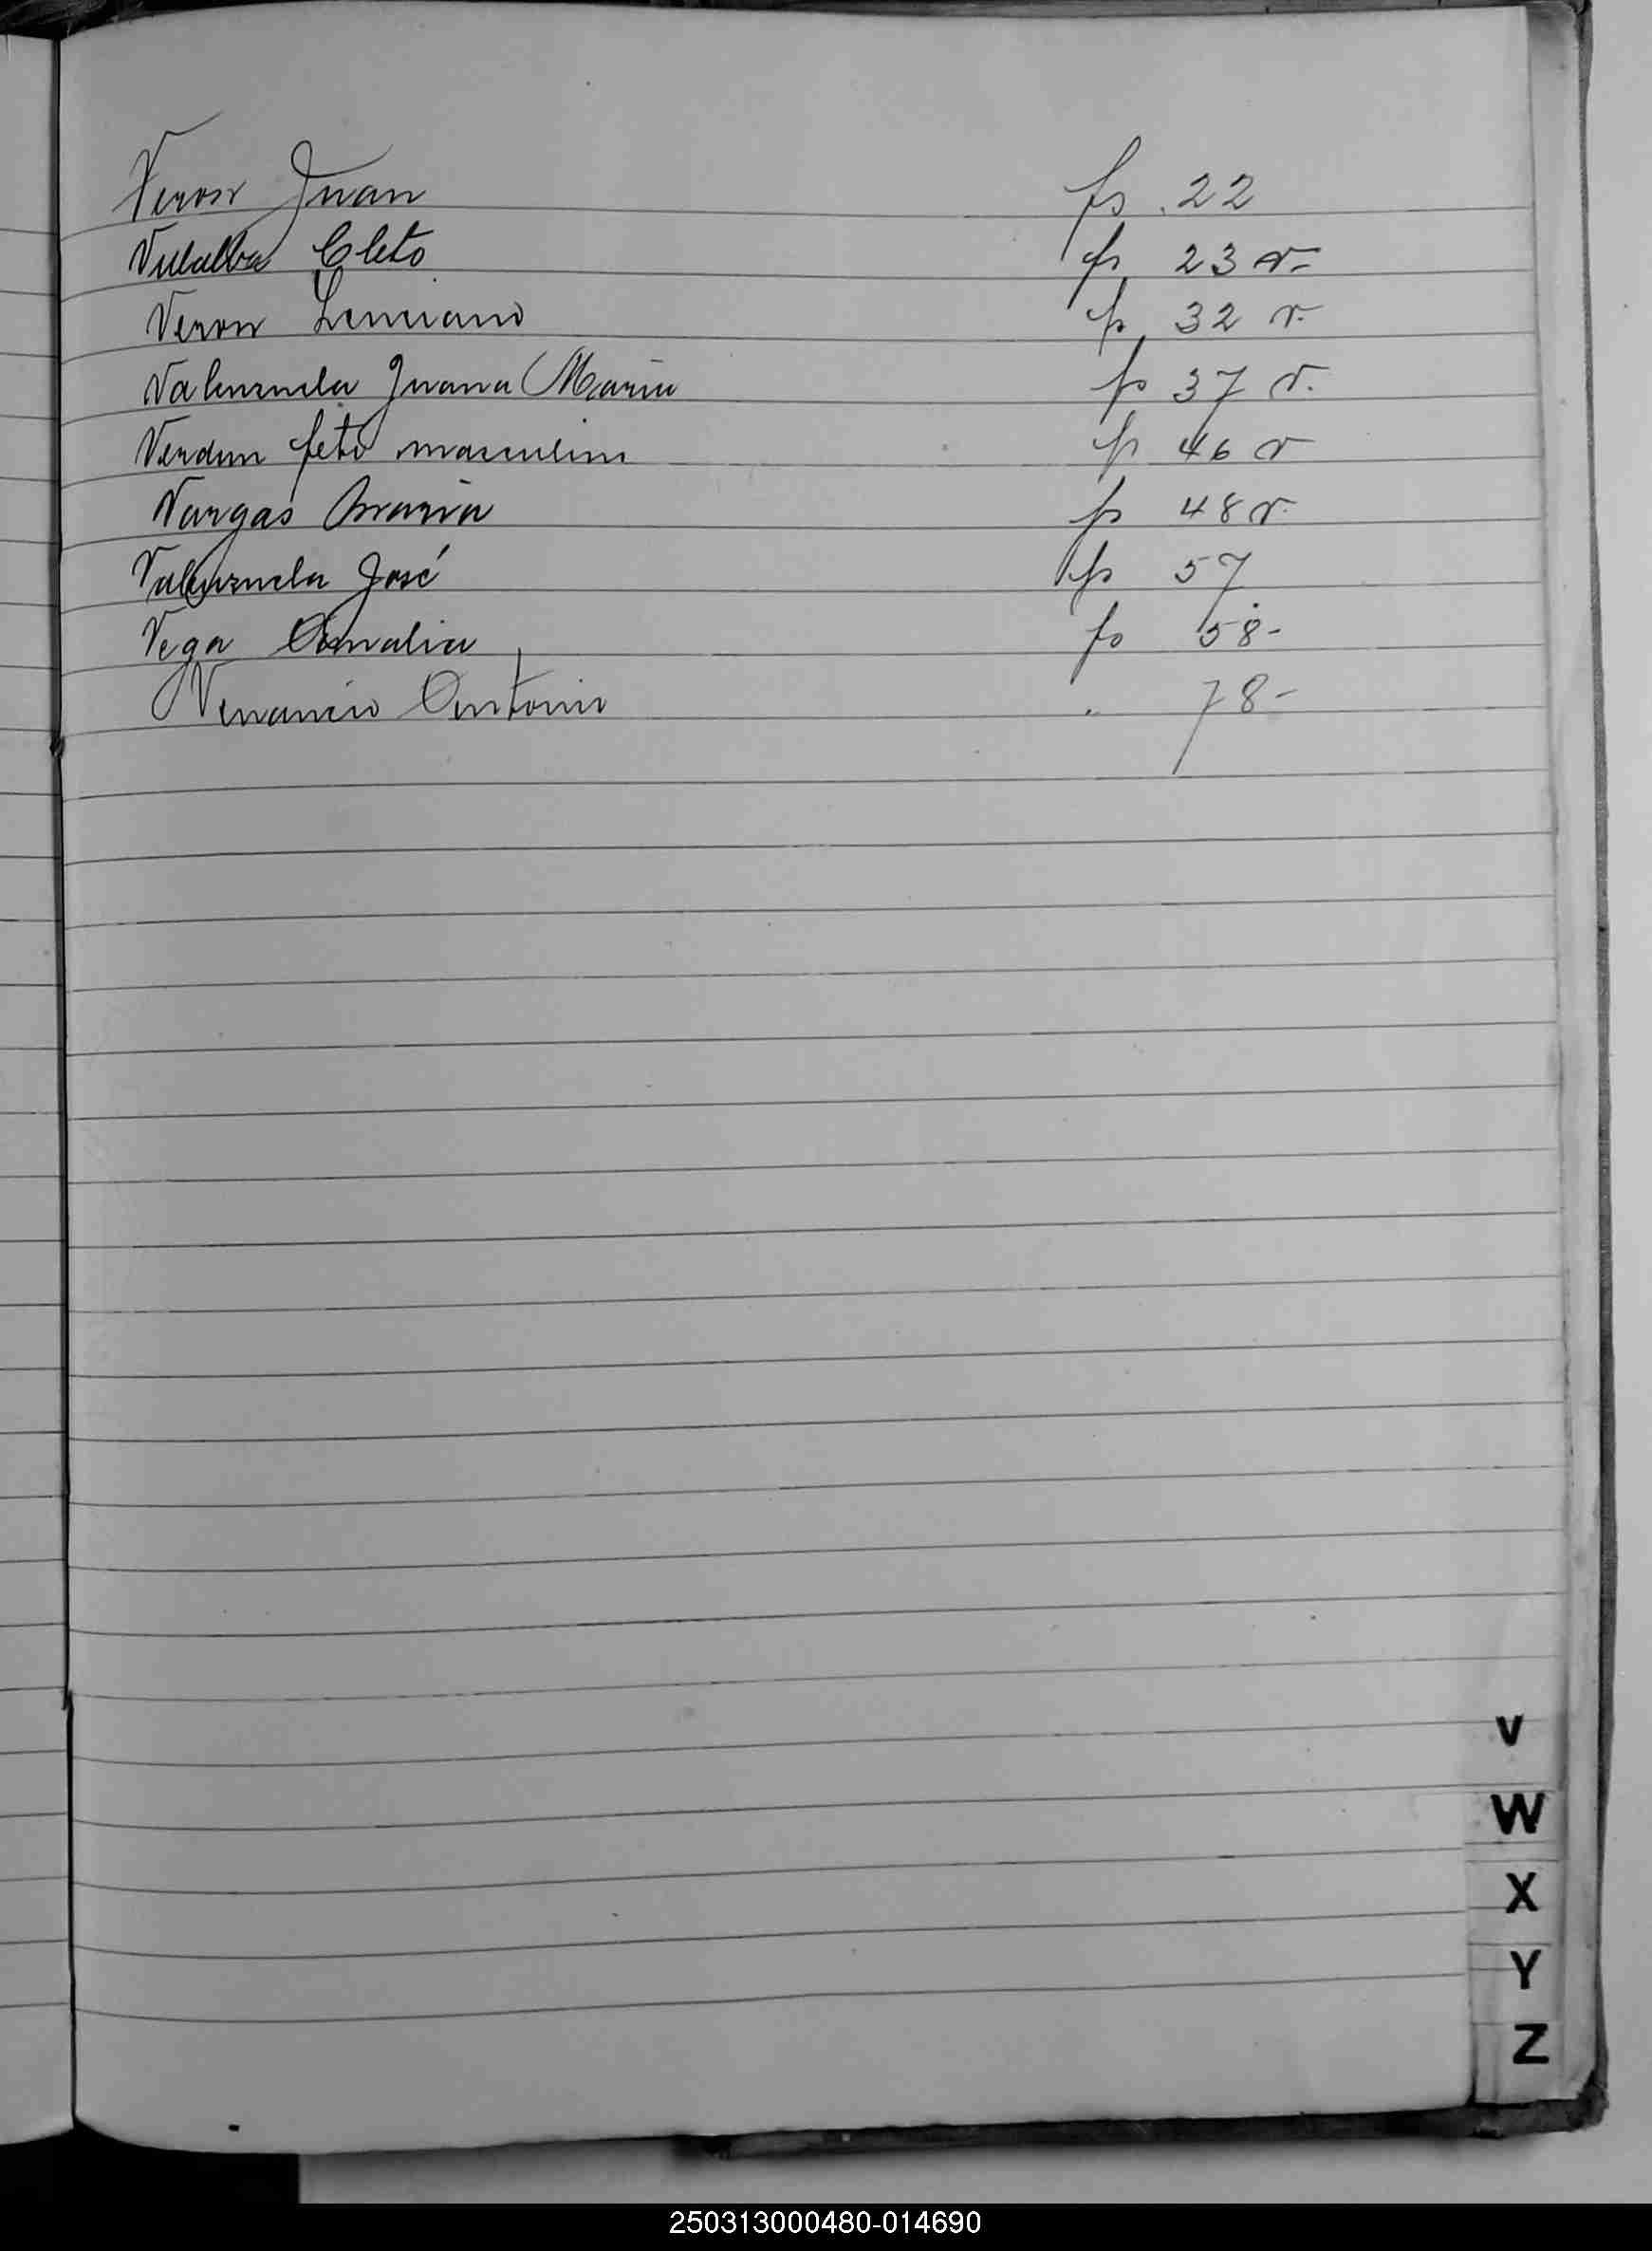 Veron Juan fs. 22
Villalba Cleto fs 23 v-
Veron fs 32 v.
Valenzuela Juana Maria fs 37 v.
Verdun feto masculino fs 46 v
Vargas Maria fs 48 v.
Valenzuela José fs 57
Vega Amalia fs 58-
Venancio Antonio " 78-
V
W
X
Y
Z
250313000480-014690